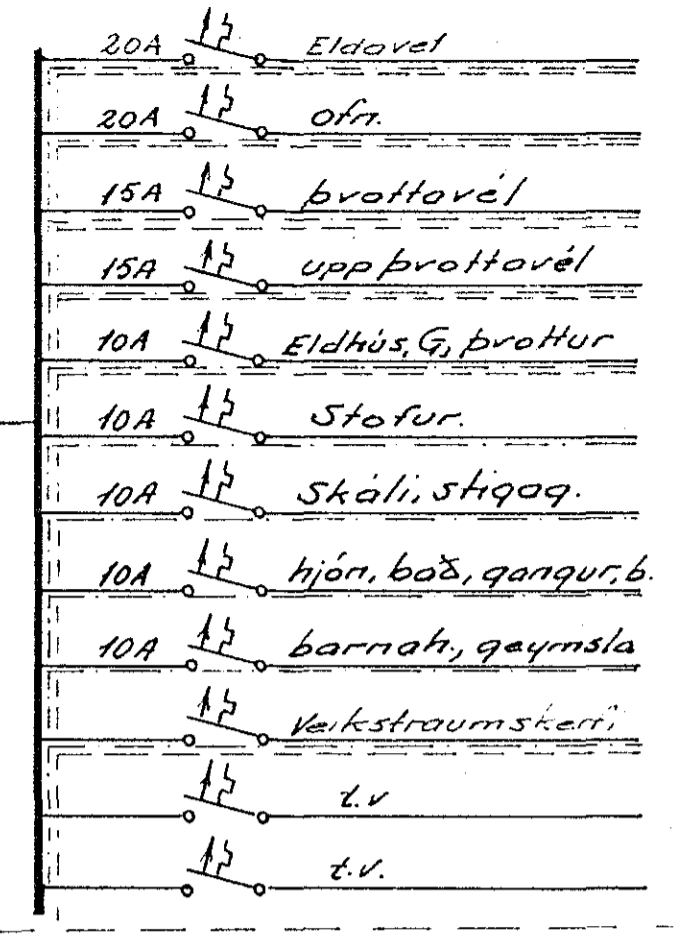 20A Eldavel
20A ofn.
15A þvottavél
15A uppþvottavél
10A Eldhús, G, þvottur
10A Stofur.
10A Skáli, stigag.
10A hjón, bað, gangur, b.
10A barnah., geymsla
Veikstraumskerfi
t.v
t.v.